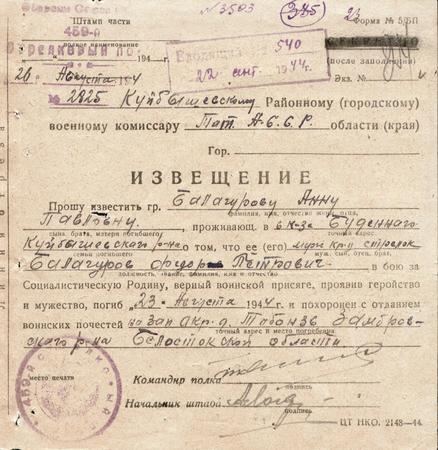 №3503 385 23
Штамп части Форма № 5/БП
459-й
Стрелковый полк
полное наименование
194 г. (после заполнения)
Входящий 540
22 сент. 1944 г.
26 Августа 1944 Экз. №
№ 2825 Куйбышевскому Районному (городскому)
военному комиссару Тат. А.С.С.Р. области (края)
Гор.
ИЗВЕЩЕНИЕ
Прошу известить гр. Балагурову Анну
фамилия, имя, отчество жены, отца,
Павловну, проживающ. в с. к-за Буденного
сына, брата, матери погибшего точный адрес
Куйбышевского р-на о том, что ее (его) муж кр-ц стрелок
семьи погибшего муж, сын, отец, брат
Балагуров Федор Петрович в бою за
должность, звание, фамилия, имя и отчество
Социалистическую Родину, верный воинской присяге, проявив геройство
и мужество, погиб "23" Августа 1944 г. и похоронен с отданием
воинских почестей на окр. д. Замбров-
точный адрес и место погребения
ского р-на Белостокской области
место печати
Командир полка
подпись
Начальник штаба
подпись
ЦТ НКО. 2148—44.